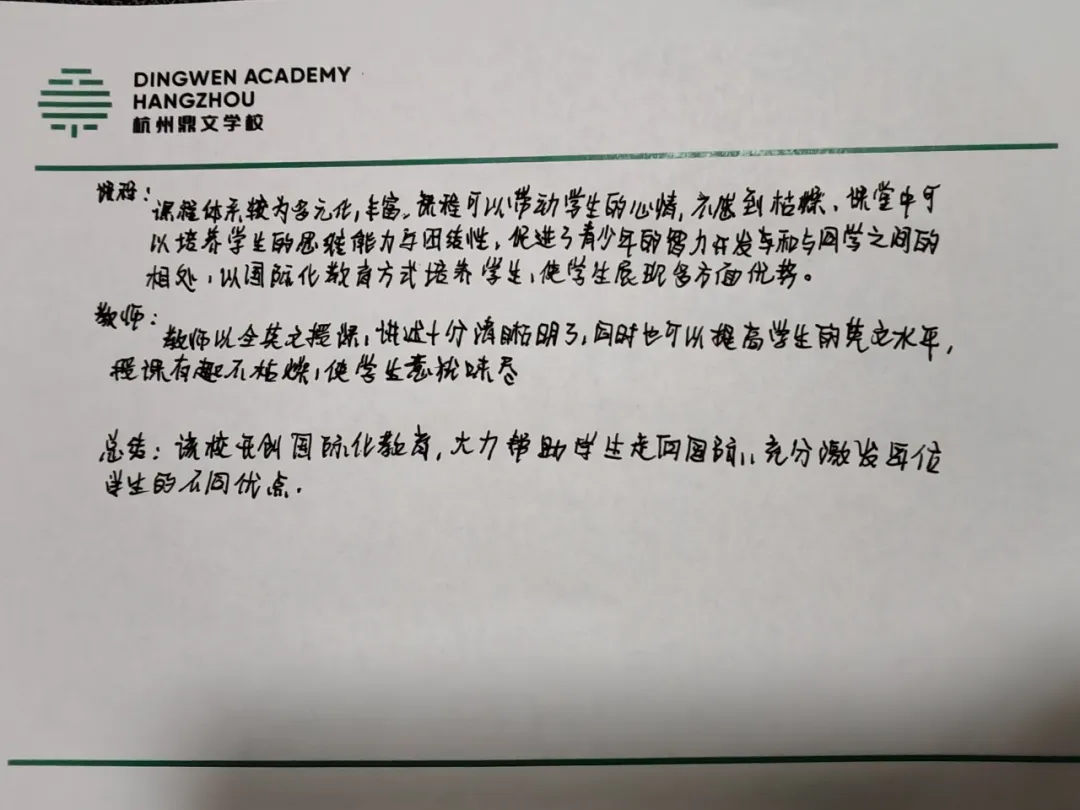 DINGWEN ACADEMY
HANGZHOU
杭州鼎文学校
课程：
课程体系较为多元化，丰富。课程可以带动学生的心情，不感到枯燥，课堂中可
以培养学生的思维能力与团结性，促进了青少年的智力开发与和与同学之间的
相处，以国际化教育方式培养学生，使学生展现多方面优势。
教师：
教师以全英文授课，讲述十分清晰明了，同时也可以提高学生的英文水平，
授课有趣不枯燥，使学生意犹味尽
总结：该校开创国际化教育，大力帮助学生走向国际，充分激发每位
学生的不同优点.